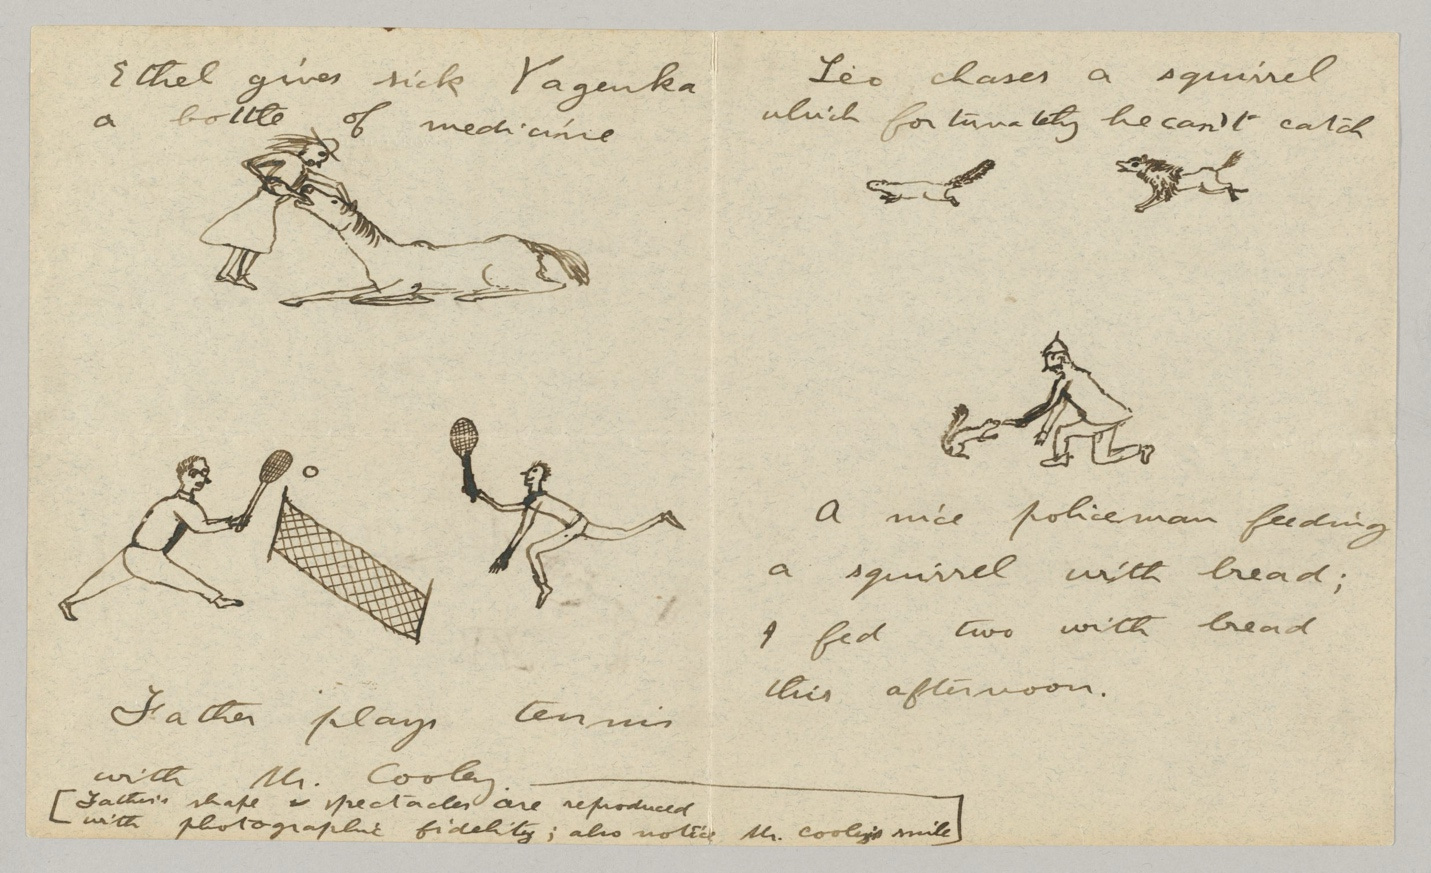 Ethel gives sick Yagenka
a bottle of medicine
Father plays tennis
with Mr. Cooley.
[Father's shape & spectacles are reproduced
with photographic fidelity; also notice Mr. Cooley's smile]
Leo chases a squirrel
which fortunately he can't catch
A nice policeman feeding
a squirrel with bread;
I fed two with bread
this afternoon.